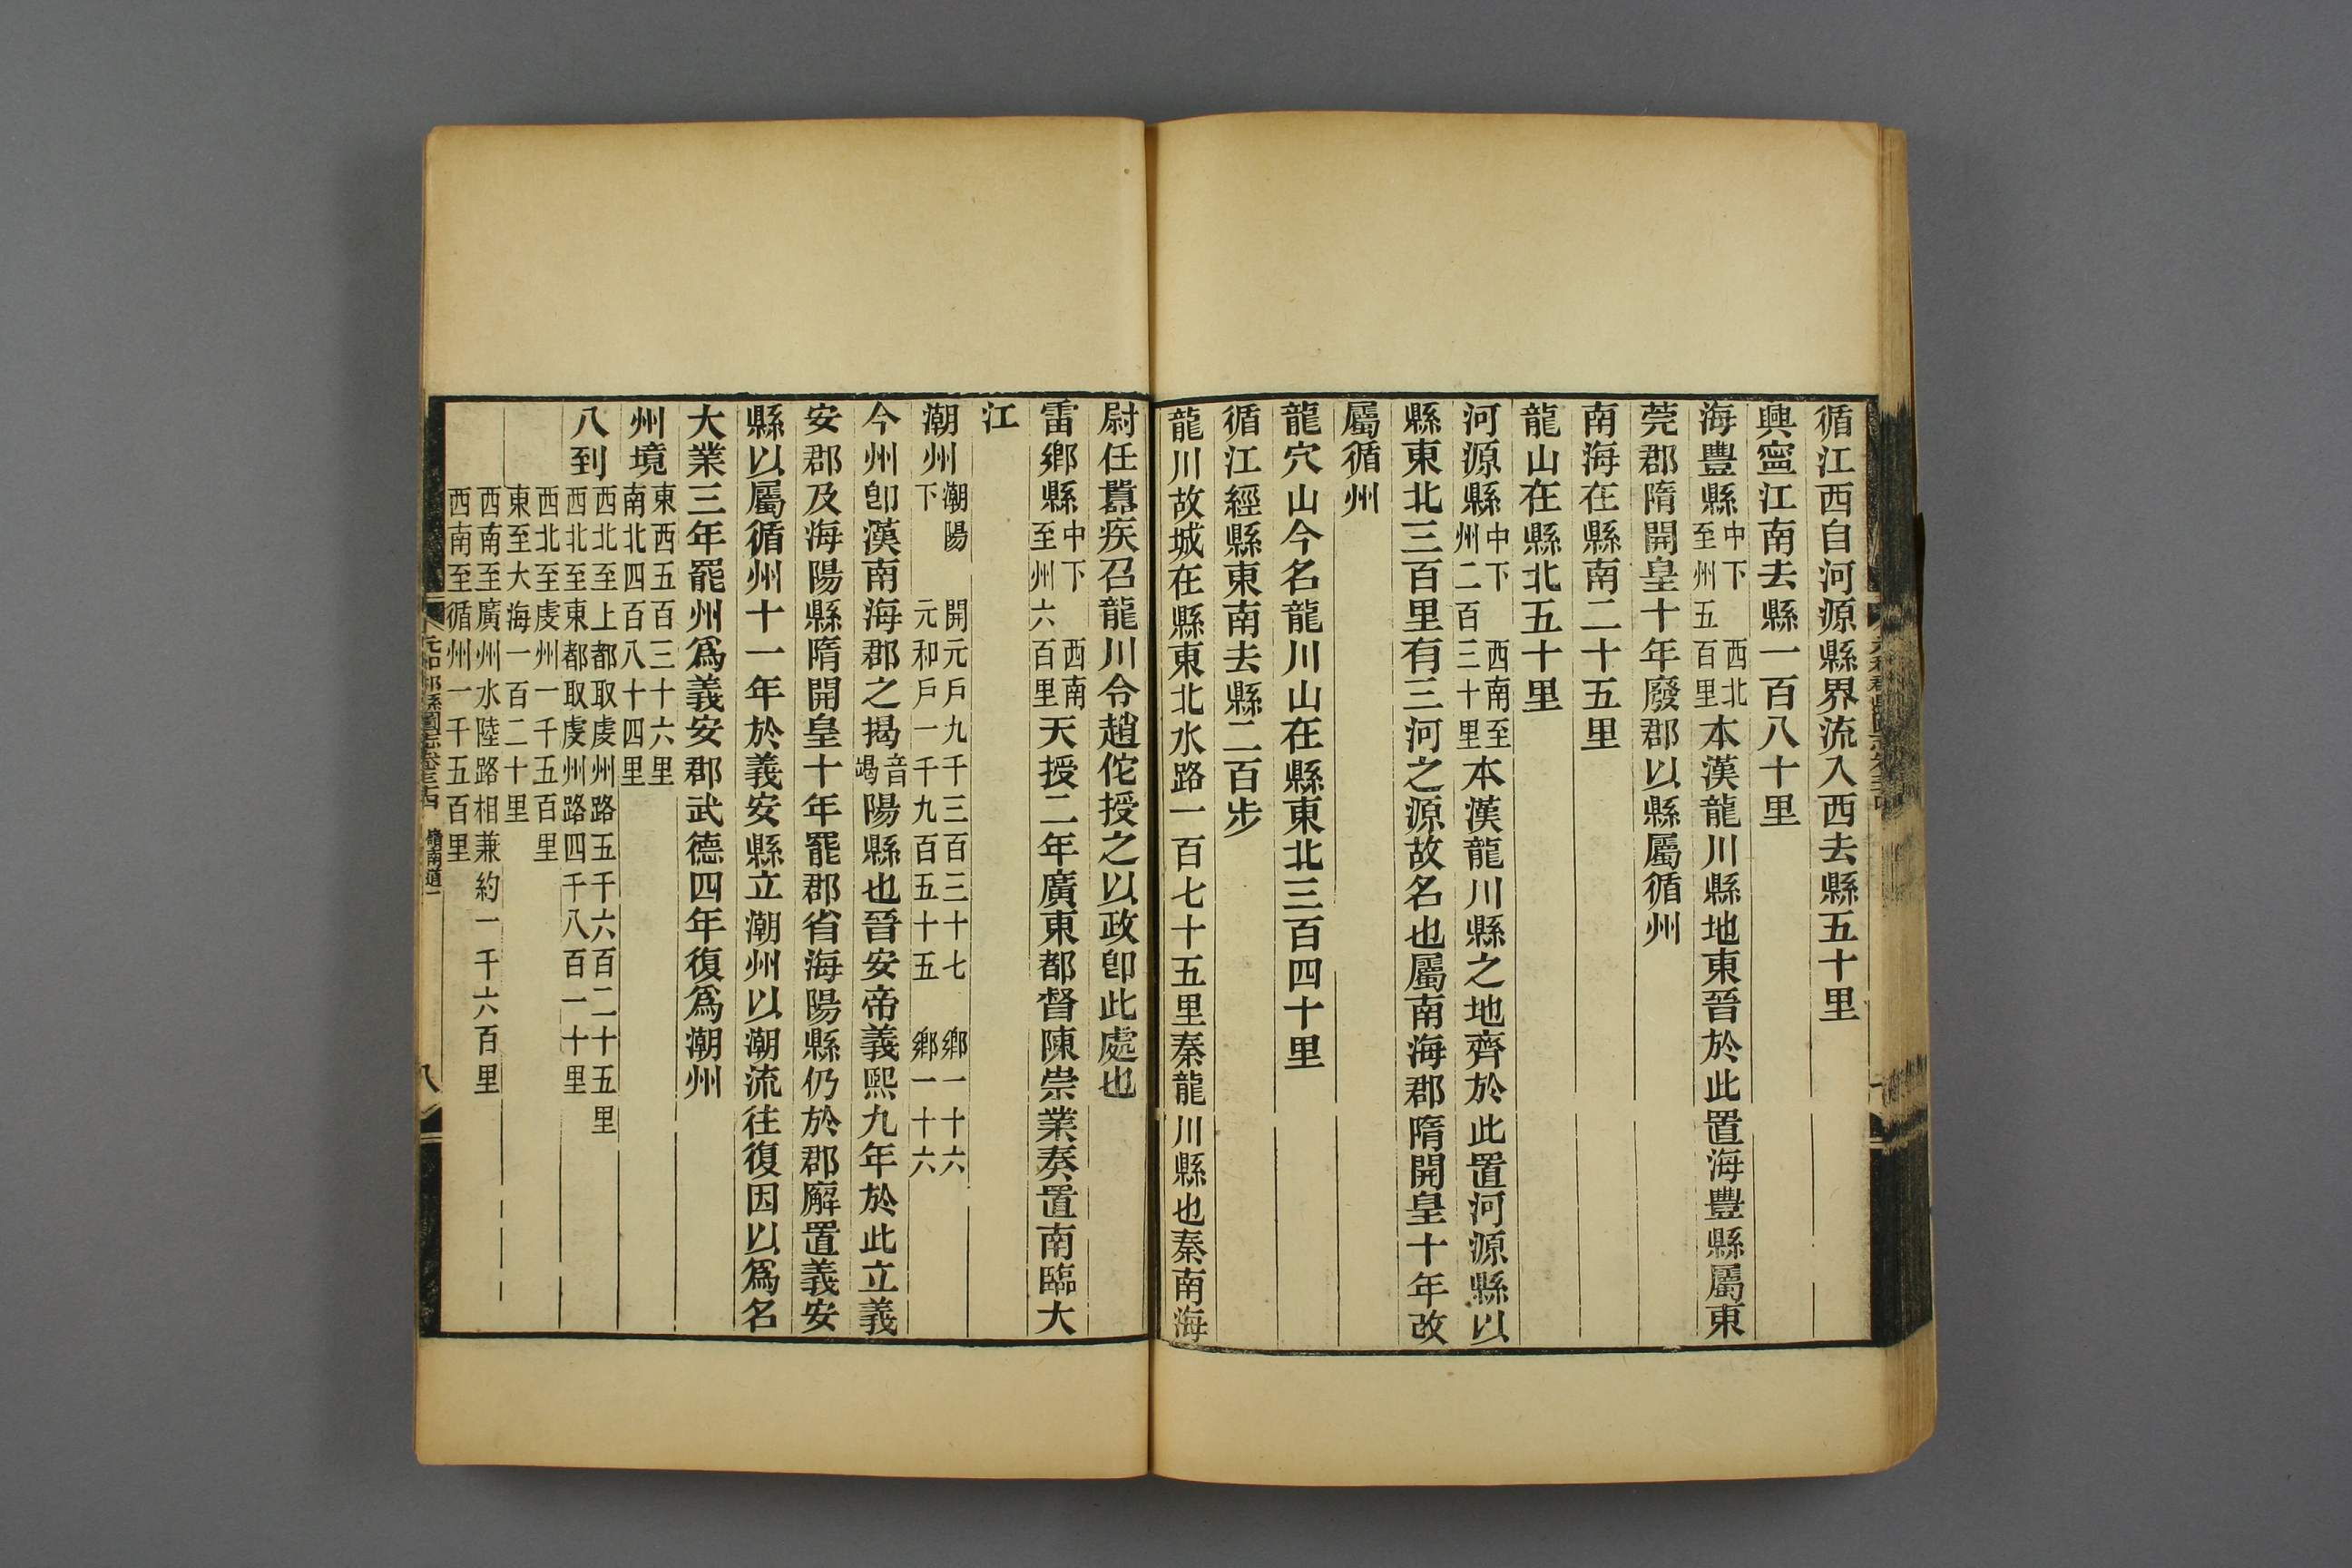 循江西自河源縣界流入西去縣五十里
興寧江南去縣一百八十里
海豐縣中下 西北至州五百里本漢龍川縣地東晉於此置海豐縣屬東
莞郡隋開皇十年廢郡以縣屬循州
南海在縣南二十五里
龍山在縣北五十里
河源縣中下 西南至州二百三十里本漢龍川縣之地齊於此置河源縣以
縣東北三百里有三河之源故名也屬南海郡隋開皇十年改
屬循州
龍穴山今名龍川山在縣東北三百四十里
循江經縣東南去縣二百步
龍川故城在縣東北水路一百七十五里秦龍川縣也秦南海
尉任囂疾召龍川令趙佗授之以政卽此處也
雷鄉縣中下 西南至州六百里天授二年廣東都督陳崇業奏置南臨大
江
潮州潮陽下 開元戶九千三百三十七 鄉一十六 元和戶一千九百五十五 鄉一十六
今州卽漢南海郡之揭音竭陽縣也晉安帝義熙九年於此立義
安郡及海陽縣隋開皇十年罷郡省海陽縣仍於郡廨置義安
縣以屬循州十一年於義安縣立潮州以潮流往復因以爲名
大業三年罷州爲義安郡武德四年復爲潮州
州境東西五百三十六里南北四百八十四里
八到西北至上都取虔州路五千六百二十五里西北至東都取虔州路四千八百一十里
西北至虔州一千五百里
東至大海一百二十里
西南至廣州水陸路相兼約一千六百里
西南至循州一千五百里
元和郡縣圖志卷三十四 嶺南道一 八